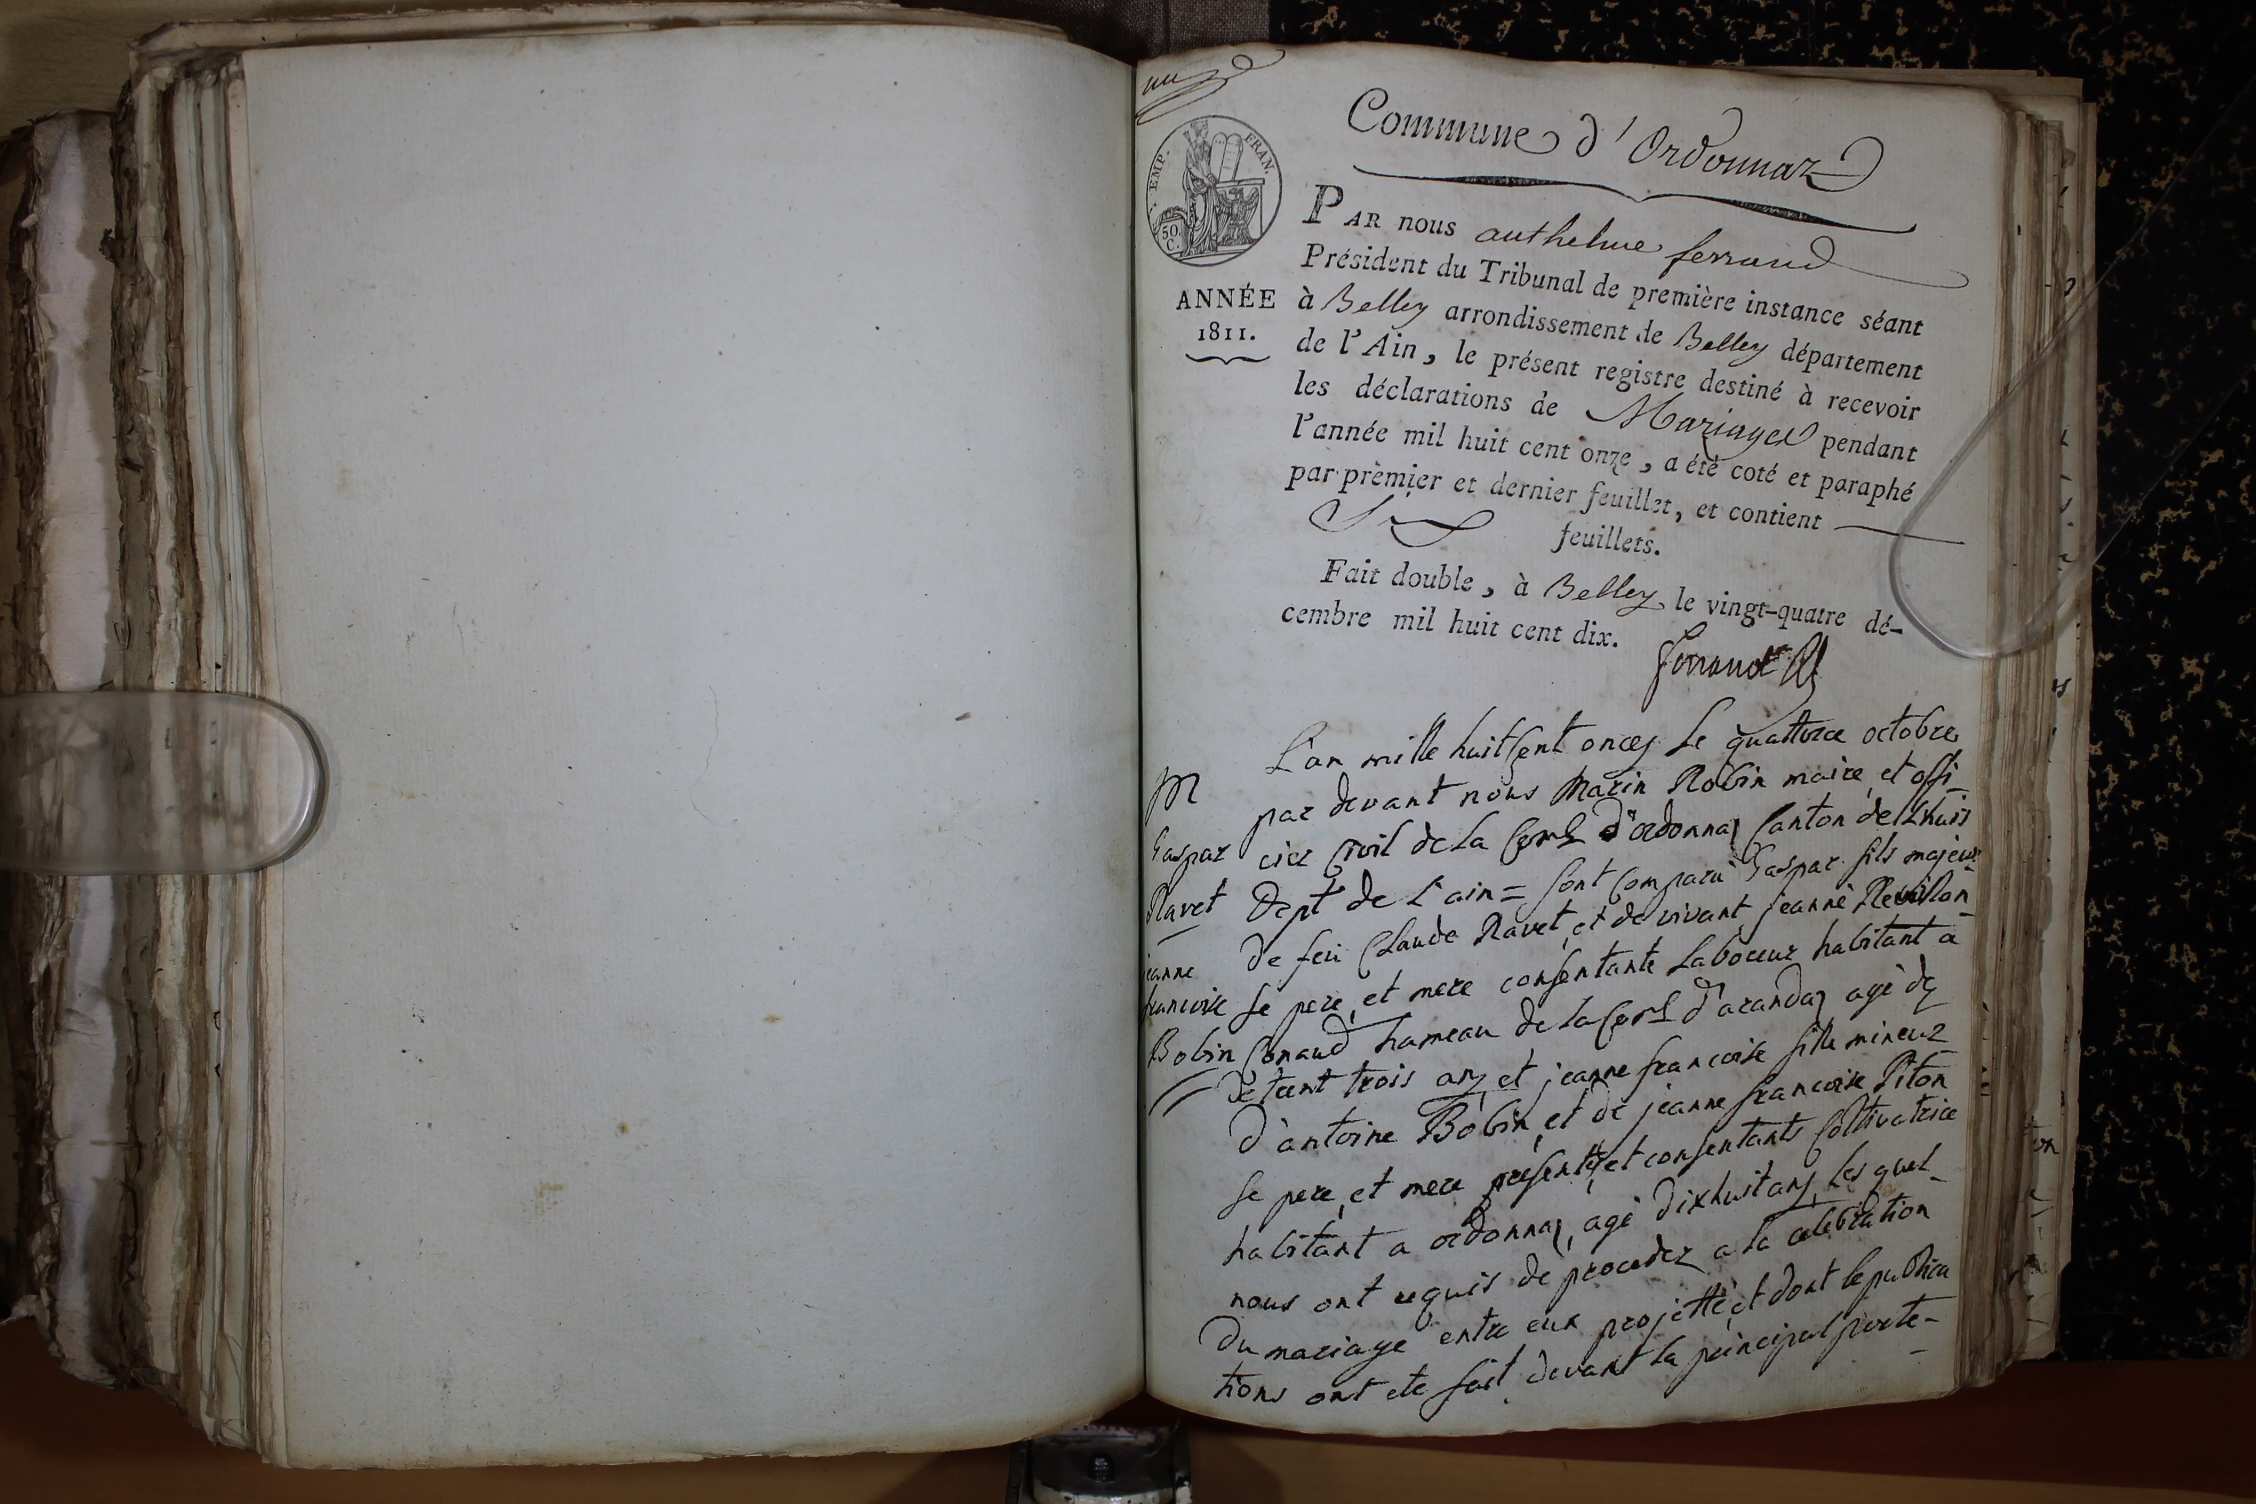 Commune d'Ordonnaz
EMP. FRAN.
50.
C.
PAR nous anthelme ferrand
Président du Tribunal de première instance séant
ANNÉE
1811.
à Belley arrondissement de Belley département
de l'Ain, le présent registre destiné à recevoir
les déclarations de Mariages pendant
l'année mil huit cent onze, a été coté et paraphé
par premier et dernier feuillet, et contient
Six feuillets.
Fait double, à Belley, le vingt-quatre dé-
cembre mil huit cent dix.
ferrand
L'an mille huit cent onze, Le quattorze octobre
par devant nous Marin Robin maire et offi-
cier Civil de La Com.e d'ordonnaz Canton de Lhuis
Dept de L'ain = sont Comparu Gaspar fils majeur
de feu Claude Ravet, et de vivant jeanne Revillon
se pere, et mere consentante Laboceur habitant a
Conand hameau de la Com.e d'arandaz agé de
trois ans, et jeanne francoise fille mineur
d'antoine Bobin, et de jeanne francoise Piton
se pere, et mere présents, et consentants Coltivatrice
habitant a ordonnaz, agé dixhuit ans Les quel-
nous ont requis de proceder a la celebration
Du mariage entre eux projetté, et dont le publica
tions ont ete fait devant la principal porte-
M
Gaspar
Ravet
jeanne
francoise
Bobin